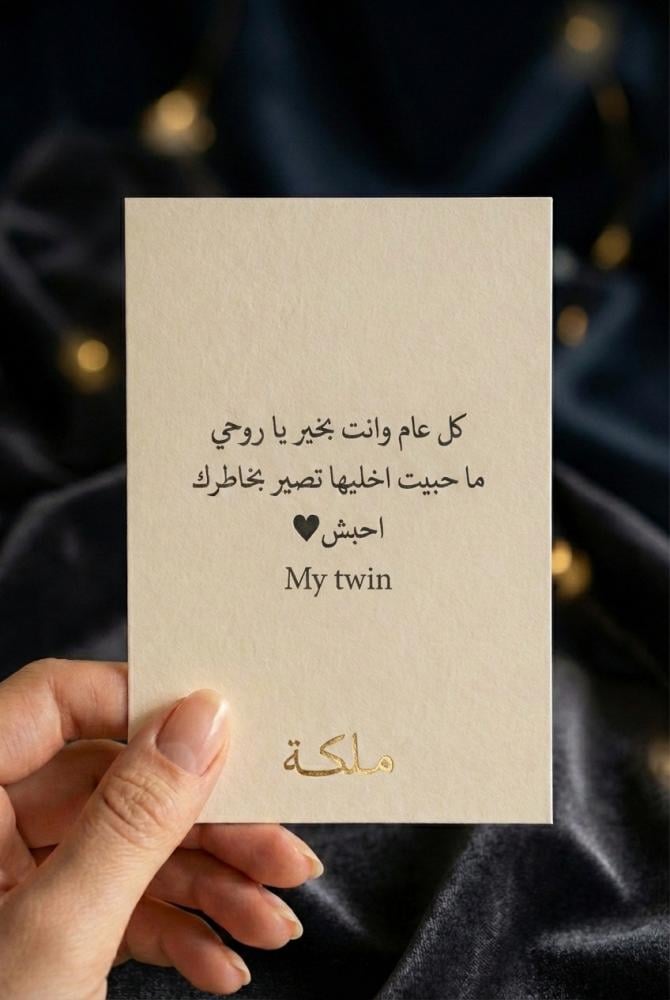 كل عام وانت بخير يا روحي
ما حبيت اخليها تصير بخاطرك
احبش♥
My twin
ملكة